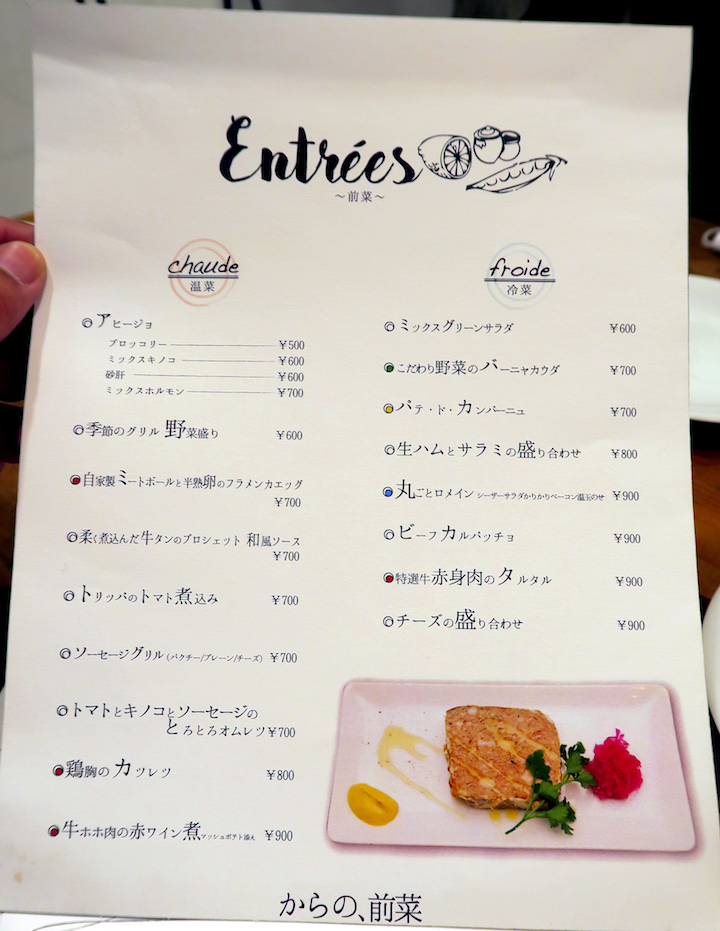 Entrées
～前菜～
chaude
温菜
アヒージョ
ブロッコリー ¥500
ミックスキノコ ¥600
砂肝 ¥600
ミックスホルモン ¥700
季節のグリル 野菜盛り ¥600
自家製ミートボールと半熟卵のフラメンカエッグ
¥700
柔く煮込んだ牛タンのブロシェット 和風ソース
¥700
トリッパのトマト煮込み ¥700
ソーセージグリル (パクチー/プレーン/チーズ) ¥700
トマトとキノコとソーセージの
とろとろオムレツ ¥700
鶏胸のカツレツ ¥800
牛ホホ肉の赤ワイン煮 マッシュポテト添え ¥900
froide
冷菜
ミックスグリーンサラダ ¥600
こだわり野菜のバーニャカウダ ¥700
パテ・ド・カンパーニュ ¥700
生ハムとサラミの盛り合わせ ¥800
丸ごとロメイン シーザーサラダかりかりベーコン温玉のせ ¥900
ビーフカルパッチョ ¥900
特選牛赤身肉のタルタル ¥900
チーズの盛り合わせ ¥900
からの、前菜